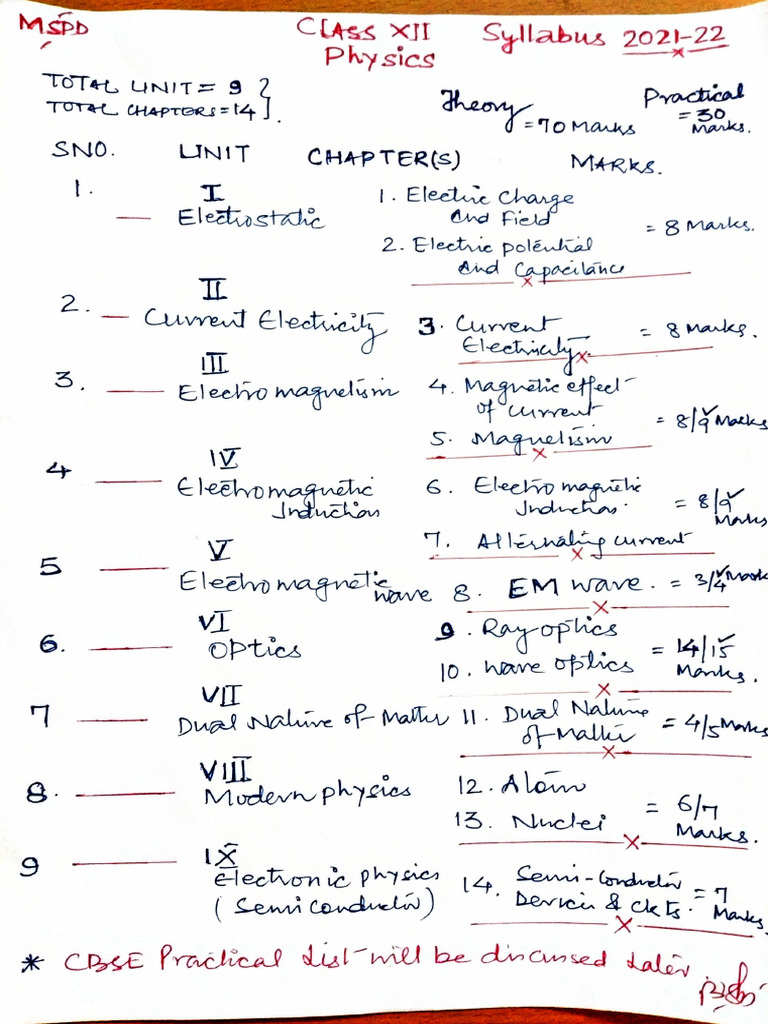 MSPD
CLASS XII Syllabus 2021-22
Physics
TOTAL UNIT = 9
TOTAL CHAPTERS = 14
Theory = 70 Marks
Practical = 30 Marks.
SNO. UNIT CHAPTER(S) MARKS.
1. I
Electrostatic
1. Electric Charge
and Field
2. Electric potential
and Capacitance
= 8 Marks.
2. II
Current Electricity
3. Current
Electricity
= 8 Marks.
3. III
Electro magnetism
4. Magnetic effect
of current
5. Magnetism
= 8/9 Marks
4 IV
Electromagnetic
Induction
6. Electro magnetic
Induction.
7. Alternating current
= 8/9 Marks
5 V
Electromagnetic
wave
8. EM wave. = 3/4 Mark
6. VI
Optics
9. Ray optics
10. wave optics
= 14/15 Marks.
7 VII
Dual Nature of Matter
11. Dual Nature
of Matter
= 4/5 Marks
8. VIII
Modern physics
12. Atom
13. Nuclei
= 6/7 Marks.
9 IX
Electronic physics
(Semi conductor)
14. Semi-Conductor
Devices & ckts.
= 7 Marks.
* CBSE Practical List will be discussed Later.